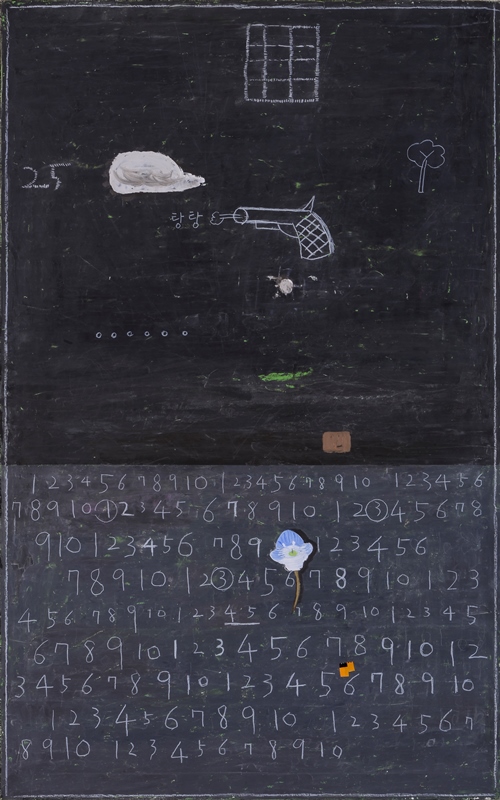 25
탕탕
1 2 3 4 5 6 7 8 9 10 1 2 3 4 5 6 7 8 9 10 1 2 3 4 5 6
7 8 9 10 ① 2 3 4 5 6 7 8 9 10 1 2 ③ 4 5 6 7 8
9 10 1 2 3 4 5 6 7 8 9 1 2 3 4 5 6
7 8 9 10 1 2 ③ 4 5 6 7 8 9 10 1 2 3
4 5 6 7 8 9 10 1 2 3 4 5 6 7 8 9 10 1 2 3 4 5
6 7 8 9 10 1 2 3 4 5 6 7 8 9 10 1 2
3 4 5 6 7 8 9 10 1 2 3 4 5 6 7 8 9 10
1 2 3 4 5 6 7 8 9 10 1 2 3 4 5 6 7
8 9 10 1 2 3 4 5 6 7 8 9 10